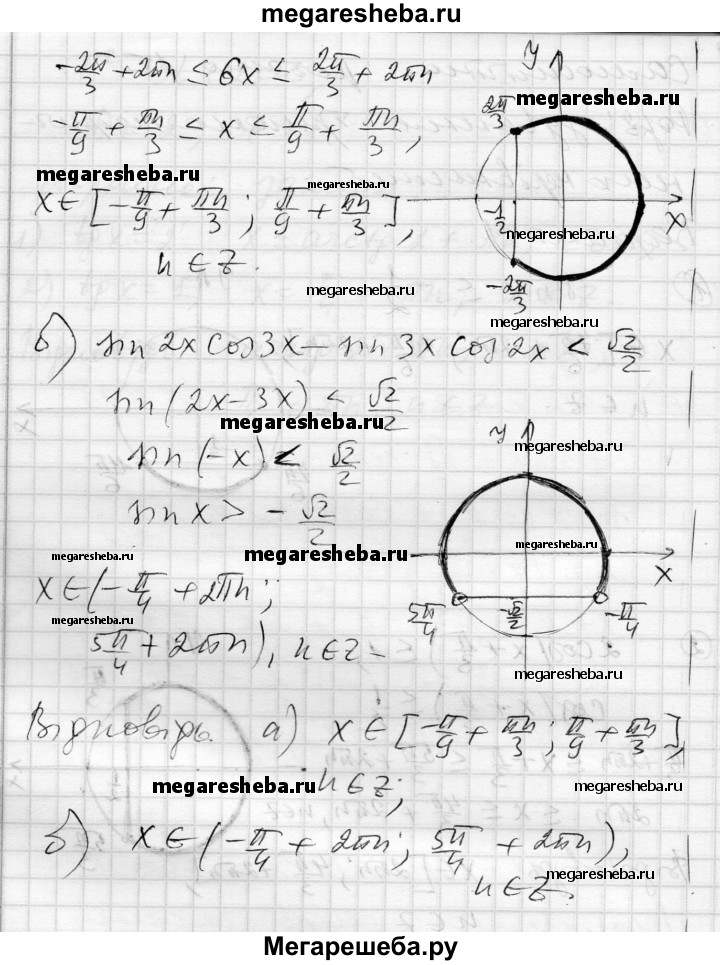 megaresheba.ru
-2π/3 + 2πn ≤ 6x ≤ 2π/3 + 2πn
-π/9 + πn/3 ≤ x ≤ π/9 + πn/3,
megaresheba.ru
megaresheba.ru
x ∈ [-π/9 + πn/3 ; π/9 + πn/3],
n ∈ Z.
y
2π/3
megaresheba.ru
-1/2
x
megaresheba.ru
-2π/3
megaresheba.ru
megaresheba.ru
б) sin 2x cos 3x - sin 3x cos 2x < √2/2
sin (2x - 3x) < √2/2
megaresheba.ru
sin (-x) < √2/2
sin x > -√2/2
y
megaresheba.ru
megaresheba.ru
megaresheba.ru
x
5π/4
-√2/2
-π/4
x ∈ (-π/4 + 2πn ;
megaresheba.ru
5π/4 + 2πn), n ∈ Z
megaresheba.ru
Відповідь. а) x ∈ [-π/9 + πn/3 ; π/9 + πn/3],
megaresheba.ru
n ∈ Z;
megaresheba.ru
б) x ∈ (-π/4 + 2πn ; 5π/4 + 2πn),
megaresheba.ru
n ∈ Z.
megaresheba.ru
Мегарешеба.ру